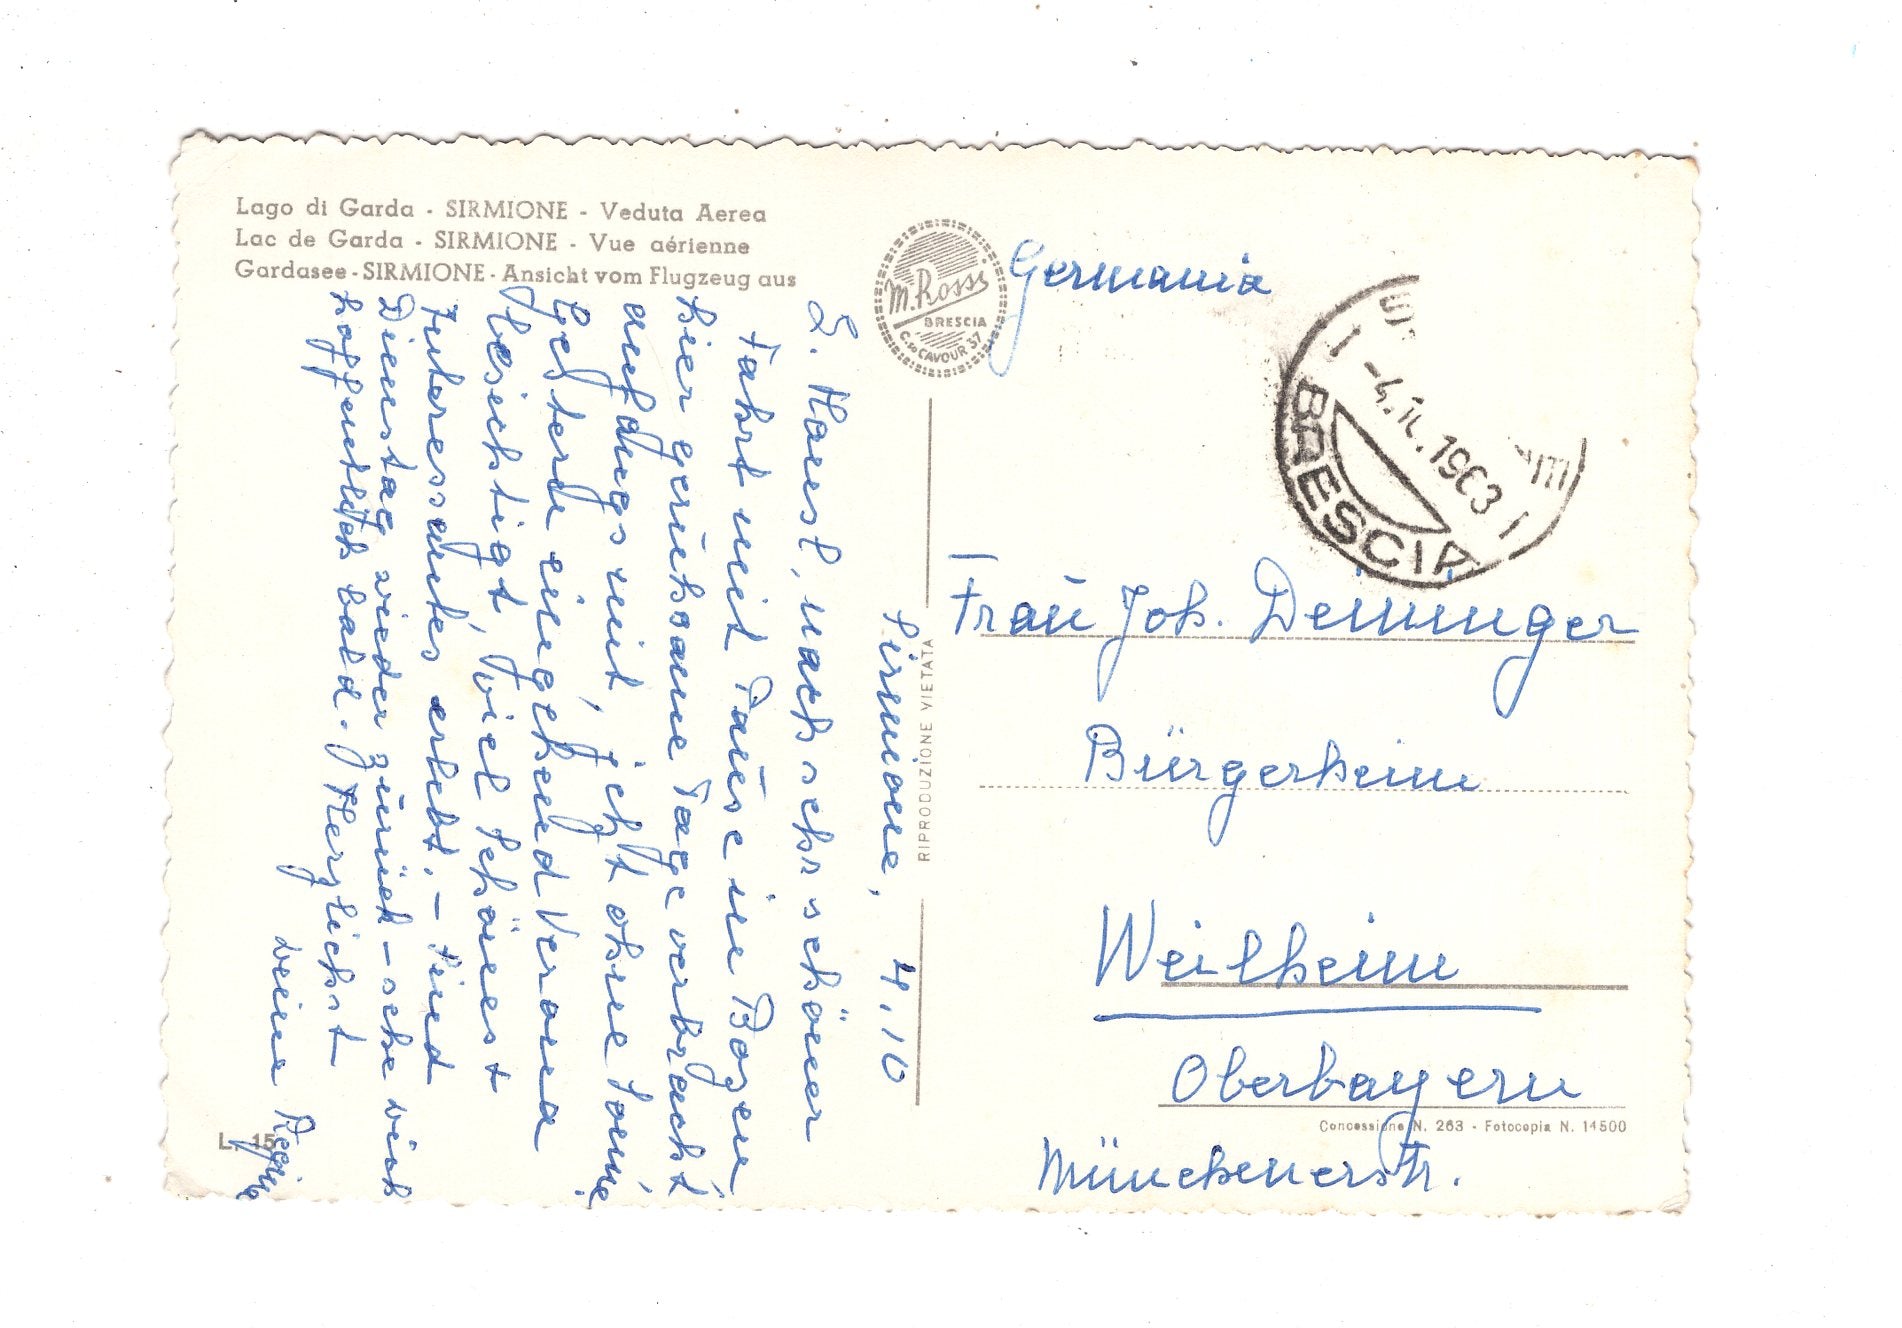 Lago di Garda - SIRMIONE - Veduta Aerea
Lac de Garda - SIRMIONE - Vue aérienne
Gardasee - SIRMIONE - Ansicht vom Flugzeug aus
M. Rossi
BRESCIA
C.so CAVOUR 37
RIPRODUZIONE VIETATA
L. 15
Sirmione, 4.10
L. nach sehr schöner
Fahrt mit Pause in Bozen
hier geruhsame Tage verbracht
anfangs mit, jetzt ohne Sonne
Gestern eingehend Verona
besichtigt, viel schönes +
Interessantes erlebt. – Sind
Dienstag wieder zurück – sehe dich
hoffentlich bald. Herzlichst
deine
Germania
BRESCIA
1963
Frau Joh. Demminger
Bürgerheim
Weilheim
Oberbayern
Concessione N. 263 - Fotocopia N. 14500
Münchenerstr.